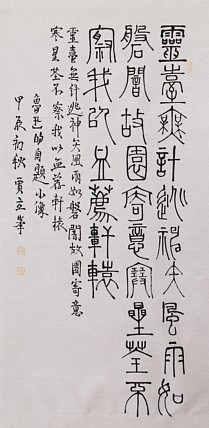 靈臺無計逃神矢風雨如
磐闇故園寄意寒星荃不
察我以血薦軒轅
靈臺無計逃神矢風雨如磐闇故園寄意
寒星荃不察我以血荐軒轅
魯迅 自題小像
甲辰初秋 賈立峯